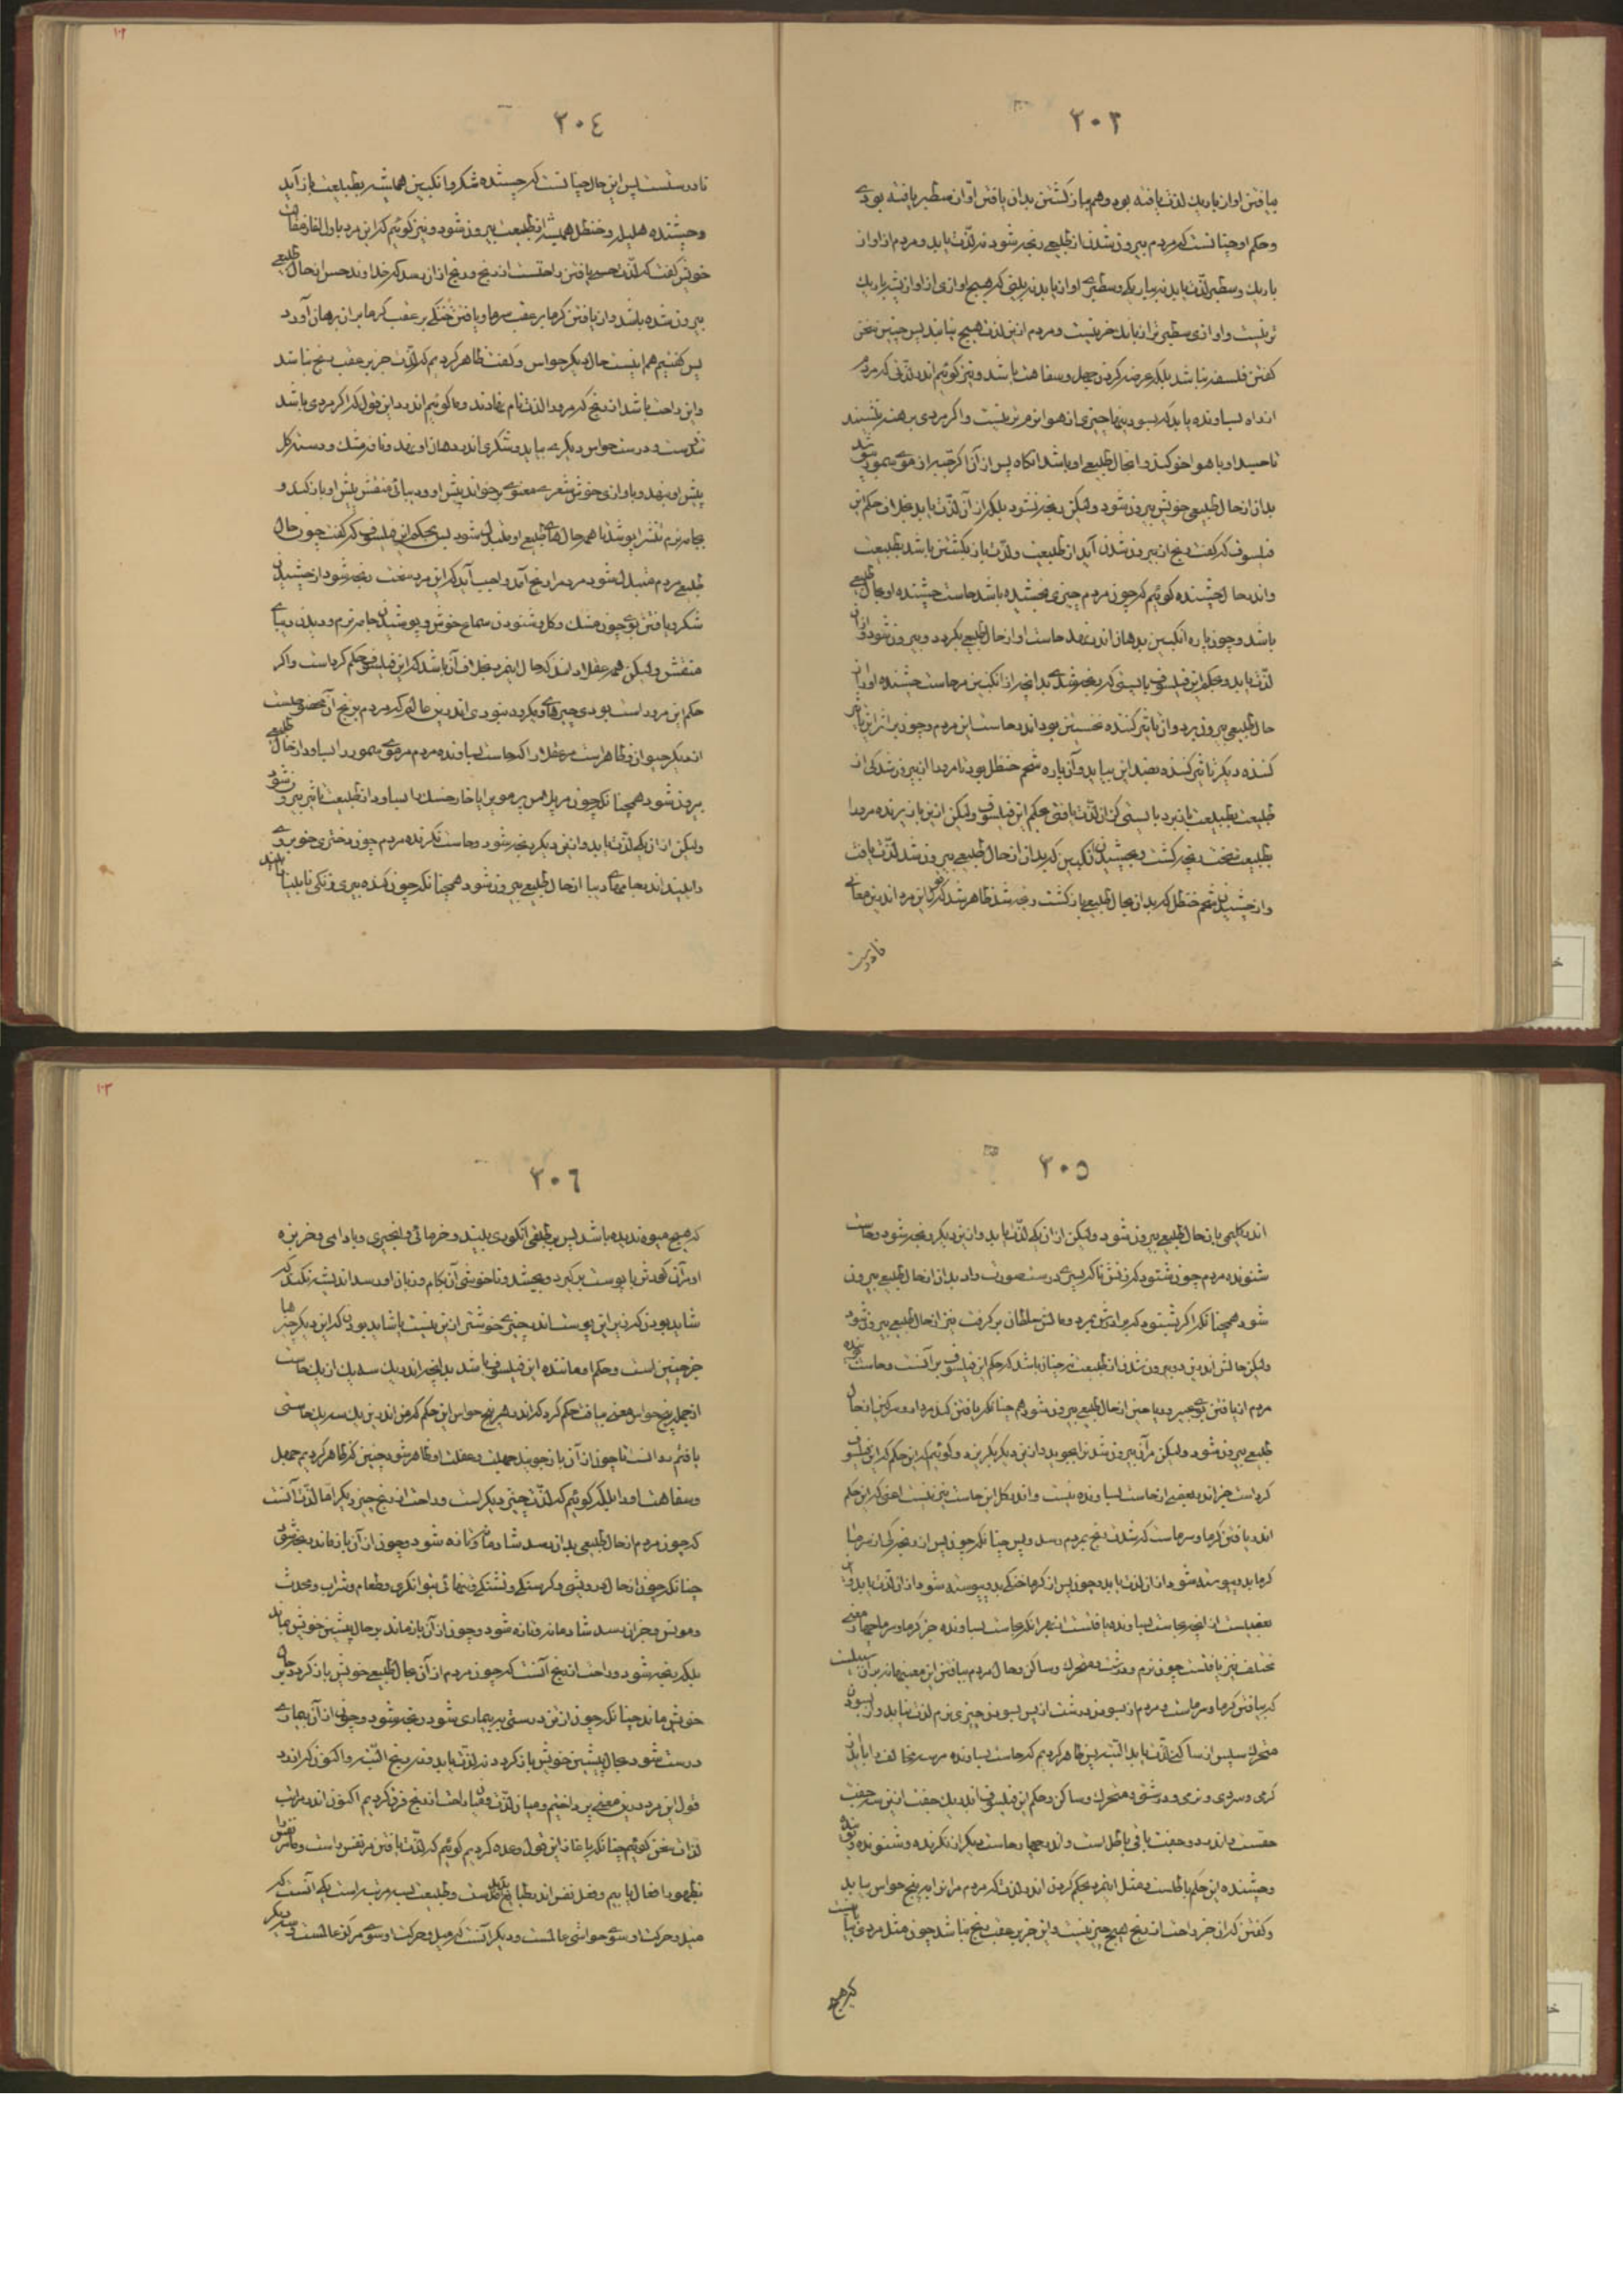 ٣٠٣
بیافتن اواز باریك لذت یافته بود و هم بباز کشتن بدان یافتن آواز سطبر یافته بودی
و حکم او چنانست که مردم بیرون شدن از طبیعی رنجه شود نه لذت یابد و مردم از اواز
باریك و سطبر لذت یابد نه بباریکی و سطبری اواز یابد نه بینی که هیچ اوازی از اواز پشه باریك
تر نیست و اوازی سطبر تر از بانك خر نیست و مردم ازین لذت هیچ نیابند پس چنین سخن
کفتن فلسفه نباشد بلکه عرضه کردن جهل و سفاهت باشد و نیز کوئیم اندر لذتی که مردم
از راه بساونده یابد که ببسودنیها چیزی از هوا نرم تر نیست و اکر مردی برهنه بنشیند
تا جسد او با هوا خو کند و انحال طبیعی او باشد انکاه پس از آن اکر پیراهن موی بپوشد
بدان از حال طبیعی خویش بیرون شود ولیکن رنجه نشود بلکه از آن لذت یابد بخلاف حکم این
فیلسوف که کفت رنج از بیرون شدن آید از طبیعت و لذت باز کشتن باشد بطبیعت
و اندر حال چشنده کوئیم که چون مردم چیزی نچشیده باشد حاست چشنده او بحال طبیعی
باشد و چون پاره انکبین بدهان اندر نهد حاست او از حال طبیعی بکردد و بیرون شود و از آن
لذت یابد و بحکم این فیلسوف بایستی که رنجه شدی بدانچه از انکبین مر حاست چشنده او را از
حال طبیعی بیرون برد و از تاثیر کننده نخستین بود اندر حاست این مردم و چون بر اثر این تاثیر
کننده دیکر تاثیر کننده بضد این بیاید و آن پاره شحم حنظل بود تا مر او را از بیرون شدکی از
طبیعت بطبیعت باز برد بایستی کز ان لذت یافتی بحکم این فیلسوف ولیکن ازین باز برنده مر او را
بطبیعت سخت رنجه کشت و بچشیدن انکبین که بدان از حال طبیعی بیرون شد لذت یافت
و از چشیدن شحم حنظل که بدان بحال طبیعی باز کشت رنجه شد ظاهر شد که قول این مرد اندرین معانی
نادرست
٣٠٤
نادرستست پس این حال چنانست که چشنده شکر و انکبین همیشه بطبیعت باز آید
و چشنده هلیله و حنظل همیشه از طبیعت بیرون شود و نیز کوئیم که این مرد باول الفاظ مقالت
خویش کفت که لذت حسی یافتن راحتست از رنج و رنج از ان رسد که خداوند حس از حال طبیعی
بیرون شده باشد و از یافتن کرما بر عقب سرما و یافتن خنکی بر عقب کرما بر ان برهان آورد
پس کفتیم هم اینست حال دیکر حواس و کفت ظاهر کردیم که لذت جز بر عقب رنج نباشد
و این راحت باشد از رنج که مر او را لذت نام نهادند و ما کوئیم اندر رد این قول که اکر مردی باشد
تندرست و درست حواس و یکی بیاید و شکری اندر دهان او نهد و نافه مشك و دسته کل
پیش او بنهد و باوازی خوش شعری معنوی بر خواند پیش او و دیبائی منقش پیش او باز کند و
بجامه نرم تنش را بپوشد تا همه حال‌های طبیعی او مبدل شود پس بحکم این فیلسوف که کفت چون حال
طبیعی مردم متبدل شود مردم را رنج آید واجب آید که این مرد سخت رنجه شود از چشیدن
شکر و یافتن بوی چون مشك و کل و شنودن سماع خوش و پوشیدن جامه نرم و دیدن دیبای
منقش ولیکن همه عقلا دانند که حال این مرد بخلاف آن باشد که این فیلسوف حکم کرد است و اکر
حکم این مرد راست بودی چیزهای مکروه نبودی اندرین عالم که مردم برنج آن مخصوص است
از دیکر حیوان و ظاهر است مر عقلا را که حاست بساونده مردم مر موی سمور را بساود از حال طبیعی
بیرون شود همچنانکه چون مر پلاس پر موی را یا خار خسك را بساود از طبیعت نیز بیرون شود
ولیکن از ان یکی لذت یابد و از این دیکر رنجه شود و حاست نکرنده مردم چون دختری خوبروی
را بیند اندر جامهای دیبا از حال طبیعی بیرون شود همچنانکه چون کنده پیری زنکی نابینا را بیند
٣٠٥
اندر کلیمی باز حال طبیعی بیرون شود ولیکن از ان یکی لذت یابد و از این دیکر رنجه شود و حاست
شنونده مردم چون بشنود که زنش تاکه پسری درست صورت زاد بدان از حال طبیعی بیرون
شود همچنانکه اکر بشنود که برادرش بمرد و مالش سلطان بر کرفت نیز از حال طبیعی بیرون شود
ولیکن حالش اندرین دو بیرون شدن از طبیعت نه چنان باشد که حکم این فیلسوف بر آنست و حاست بوینده
مردم از یافتن بوی عبیر و ریاحین از حال طبیعی بیرون شود هم چنانکه از یافتن کند مردار و سرکین از حال
طبیعی بیرون شود ولیکن مر آن بیرون شدن را بجوید و از این دیکر بکریزد و کوئیم که این حکم که این فیلسوف
کرد است جز اندر بعضی از حاست بساونده نیست و اندر کل این حاست نیز نیست اعنی که این حکم
اندر یافتن کرما و سرماست که شدت رنج بمردم رسد و پس چنانکه چون پس از رنجکی از سرما
کرما بدو پیوسته شود از ان لذت یابد و چون پس از کرما خنکی بدو پیوسته شود از ان لذت یابد و این
بعضیست از انچه بحاست بساونده یافتست از بهر انکه بحاست بساونده جز کرما و سرما چیزهای معنی
مختلف نیز یافتست چون نرم و درشت و متحرك و ساکن و حال مردم بیافتن این معنیها نه بر ان سبیلست
که بیافتن کرما و سرماست و مردم از بسودن درشت از پس بسودن چیزی نرم لذت نیابد و از بسودن
متحرك سپس از ساکنی لذت یابد البته پس ظاهر کردیم که حاست بساونده مر سه مخالف را یابد از
کرمی و سردی و نرمی و درشتی و متحرك و ساکن و حکم این فیلسوف اندر یك جفت ازین سه جفت
حقست و اندر دو جفت باقی باطل است و اندر چهار حاست دیکر از نکرنده و شنونده و بوینده
و چشنده این حکم باطلست و مثل این مرد بحکم کردن اندر لذت که مردم مر انرا بهر پنج حواس بیابد
و کفتن که آن جز راحت از رنج هیچ چیز نیست و این جز بر عقب رنج نباشد چون مثل مردی بیابانیست
که هیچ
٣٠٦
که هیچ میوه ندیده باشد پس بطبقی انکوری بیند و خرمائی و انجیری و بادامی و خربزه
او مر آن کوزش با پوست بر کیرد و بچشد و ناخوشی آن بکام و زبان او رسد اندیشه نکند که
شاید بودن که زیر این پوست اندر چیزی خوشتر ازین نیست یا شاید بودن که این دیکر چیزها
جز چنین است و حکم او مانند این فیلسوف باشد بدانچه اندر یك سه یك از یك حاست
از جمله پنج حواس معنی بیافت حکم کرد که اندر هر پنج حواس این حکم که من اندرین یك سه یك حاستی
یافتم رواست تا چون از آن باز جویند جهلیت و غفلت او ظاهر شود چنین که ظاهر کردیم جهل
و سفاهت او را بلکه کوئیم که لذت چیزی دیکر است و راحت از رنج چیز دیکر اما لذت آنست
که چون مردم از حال طبیعی بدان رسد شادمانه و تازه شود و چون از آن باز ماند رنجه شود
چنانکه چون از حال درویشی و کرسنکی و تشنکی و تنهائی بتوانکری و طعام و شراب و محدث
و مونس و جز ان رسد شادمانه و تازه شود و چون از آن باز ماند بر حال پیشین خویش نماند
بلکه رنجه شود و راحت از رنج آنست که چون مردم از آن بحال طبیعی خویش باز کردد بر حال
خویش ماند چنانکه چون از تن درستی به بیماری شود رنجه شود و چون از آن بیماری
درست شود و بحال پیشین خویش باز کردد نه لذت یابد و نه رنج البته و اکنون که از رد
قول این مرد برین معنی پرداختیم و میان لذت و میان راحت از رنج فرق کردیم اکنون اندر مراتب
لذات سخن کوئیم چنانکه باغاز این قول وعده کردیم کوئیم که لذت یافتن مر نفس راست و ما مر نفس را
بظهور افعال یابیم و فعل نفس اندر طبایع پدیدست و طبیعت بسه مرتبه است یکی آنست که
میل و حرکت او سوی حواشی عالمست و دیکر آنست که میل و حرکت او سوی مرکز عالمست و سدیکر